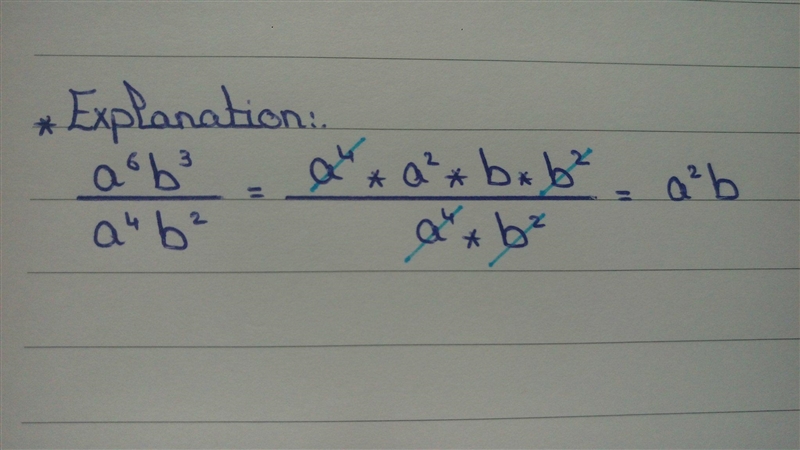 * Explanation:.
a⁶b³ / a⁴b² = a⁴ * a² * b * b² / a⁴ * b² = a²b